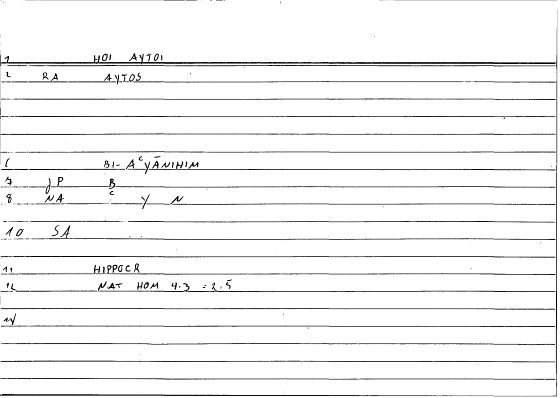 1 HOI AYTOI
2 RA AYTOS
6 BI- AᶜYĀNIHIM
7 JP B
8 NA C Y N
10 SA
11 HIPPOCR
12 NAT HOM 4.3 = 2.5
14